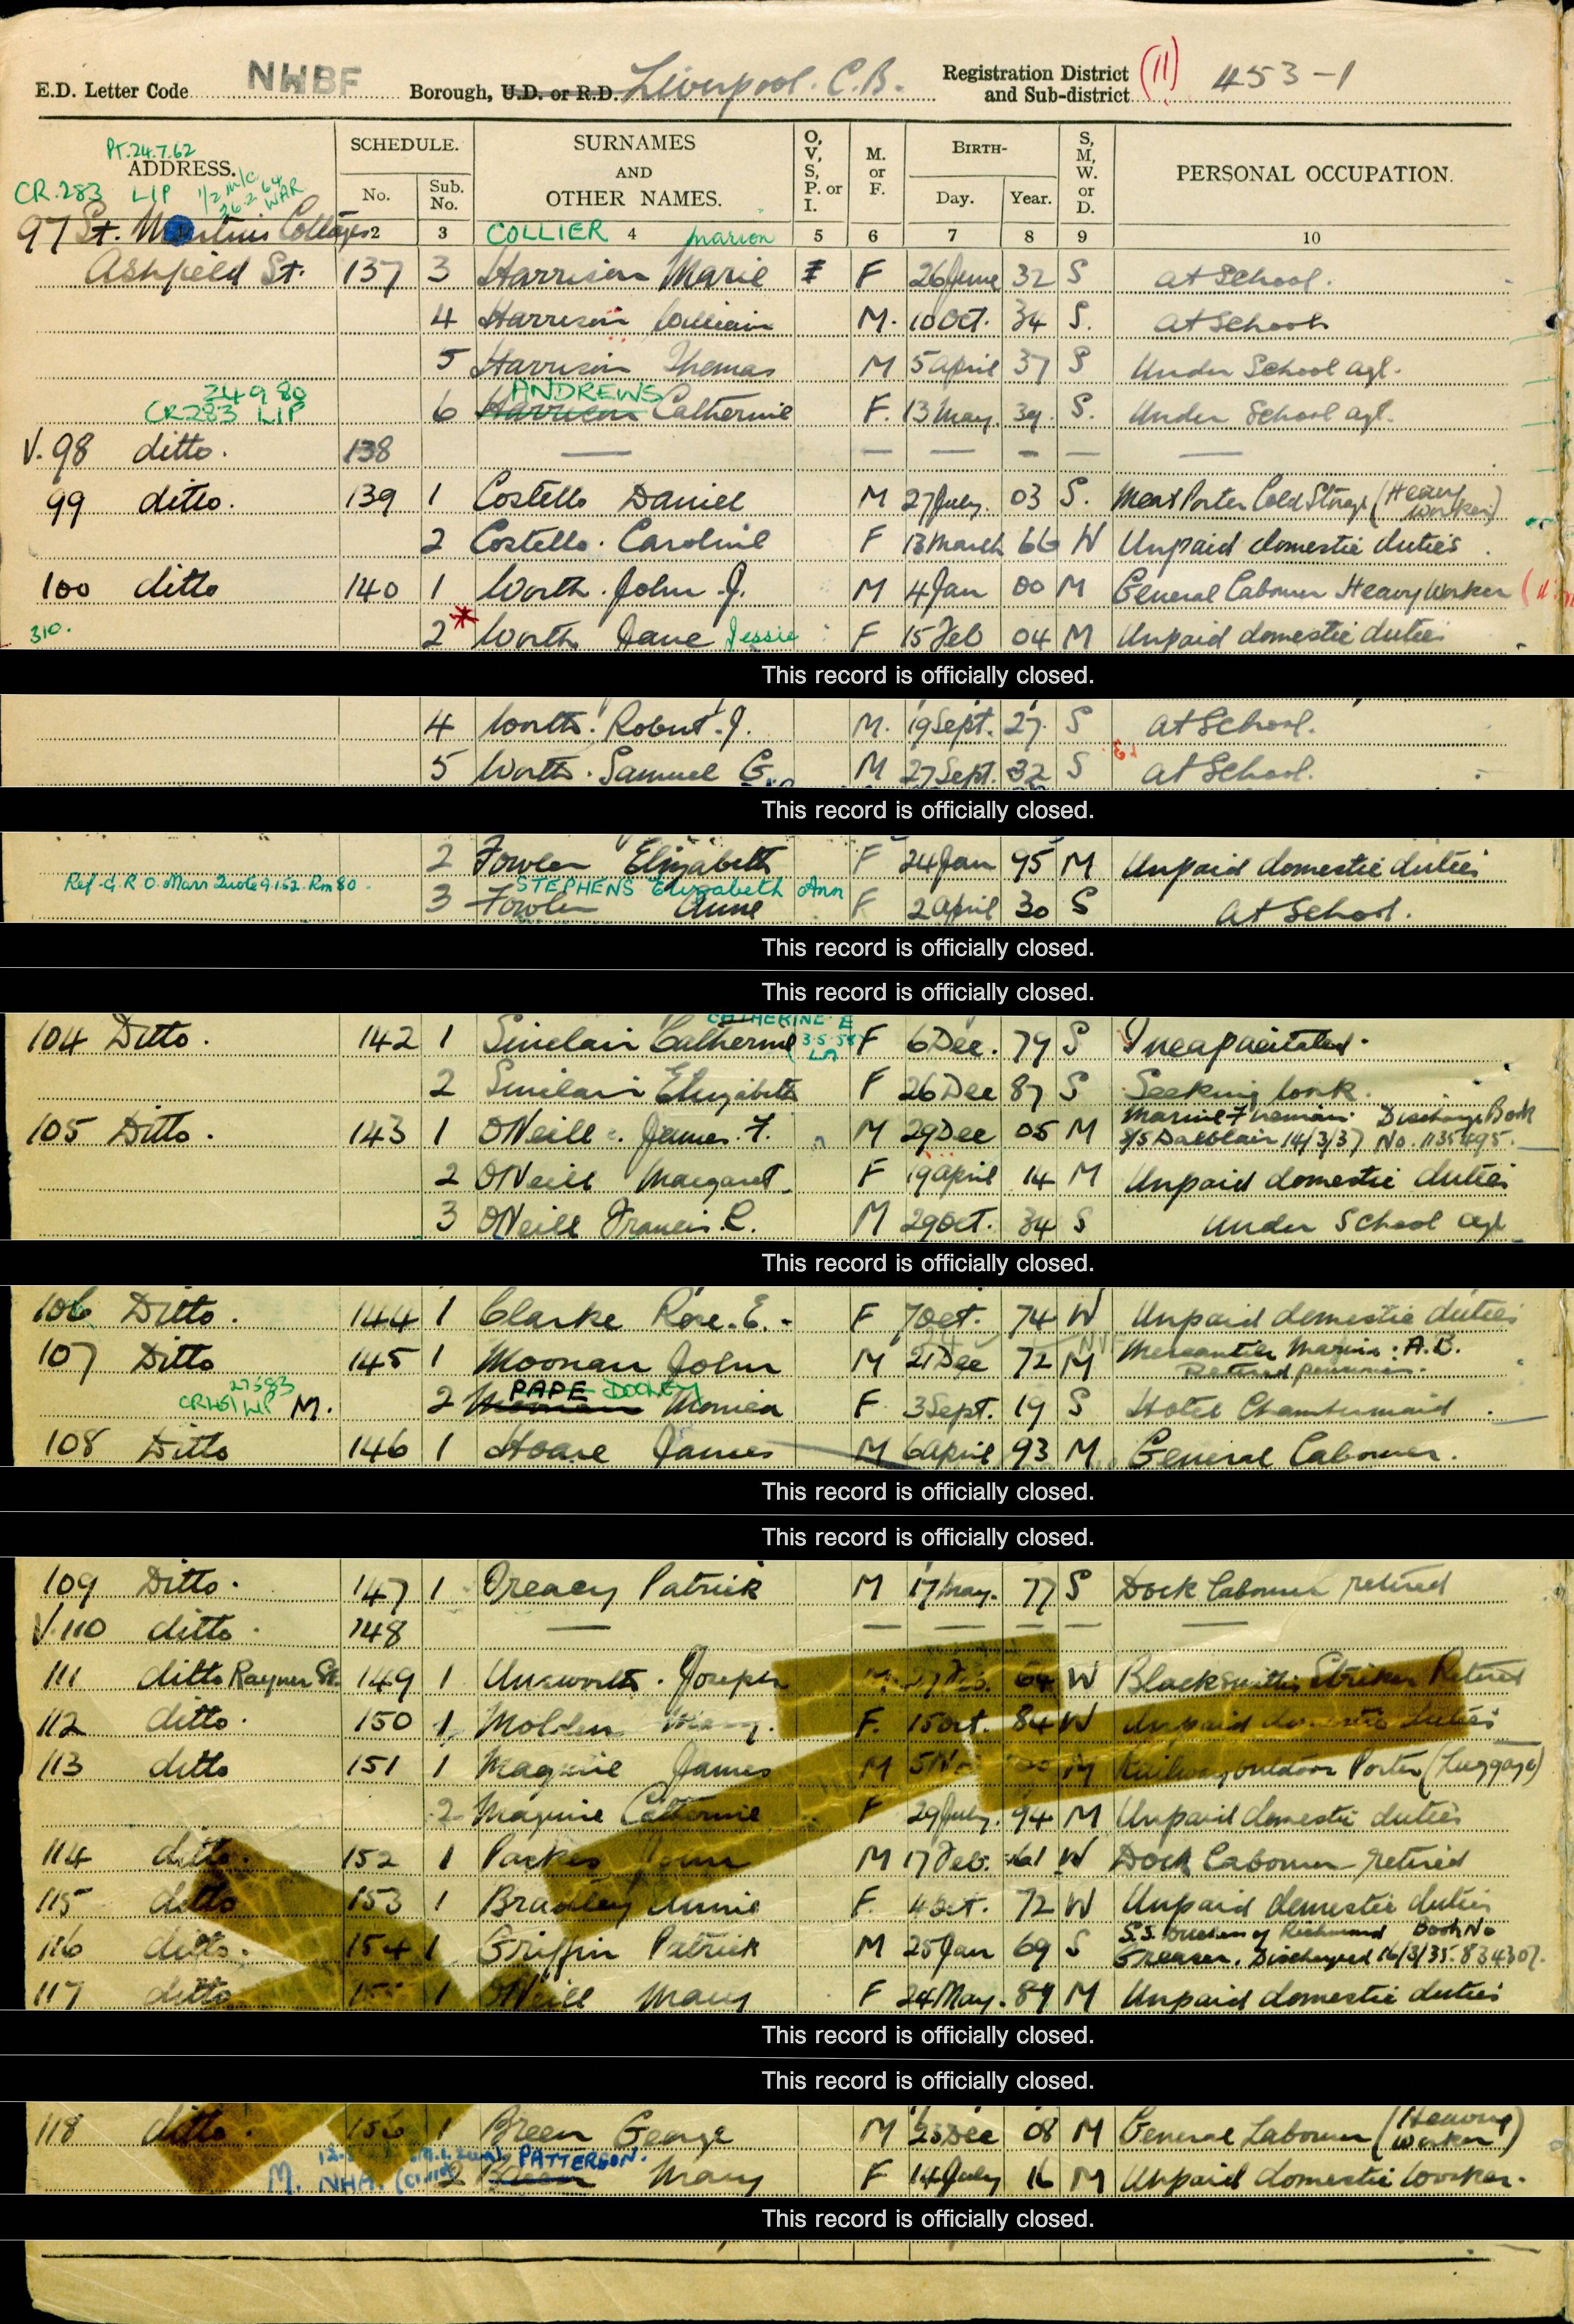 E.D. Letter Code NHBF Borough, U.D. or R.D. Liverpool. C.B. Registration District and Sub-district (11) 453-1
PT.24.7.62
CR.283 LIP 1/2 M/C 26.2.64 WAR
ADDRESS. SCHEDULE. No. Sub. No. SURNAMES AND OTHER NAMES. O, V, S, P. or I. M. or F. BIRTH- Day. Year. S, M, W. or D. PERSONAL OCCUPATION.
2 3 4 5 6 7 8 9 10
COLLIER Marion
97 St. Martins Cottages
Ashfield St. 137 3 Harrison Marie F 26 June 32 S at School.
4 Harrison William M. 10 Oct. 34 S. at School
5 Harrison Thomas M 5 April 37 S Under School age.
24 9 80 ANDREWS
CR283 LIP 6 Harrison Catherine F. 13 May. 39. S. Under School age.
V. 98 ditto. 138 — — — — —
99 ditto. 139 1 Costello Daniel M 27 July. 03 S. Meat Porter Cold Storage (Heavy Worker)
2 Costello. Caroline F 13 March 66 W Unpaid domestic duties.
100 ditto 140 1 Worth. John. J. M 4 Jan 00 M General Labourer Heavy Worker
310. 2 Worth Jane Jessie F 15 Feb 04 M Unpaid domestic duties
This record is officially closed.
4 Worth. Robert. J. M. 19 Sept. 27. S at School.
5 Worth. Samuel G. M 27 Sept. 32 S at School.
This record is officially closed.
2 Fowler Elizabeth F 24 Jan 95 M Unpaid domestic duties
Ref. G.R.O. Rm 80. STEPHENS Elizabeth Ann
3 Fowler Anne F 2 April 30 S at School.
This record is officially closed.
This record is officially closed.
CATHERINE E 3.5.58 LA
104 Ditto. 142 1 Sinclair Catherine F 6 Dec. 79 S Incapacitated.
2 Sinclair Elizabeth F 26 Dec 87 S Seeking Work.
105 Ditto. 143 1 ONeill. James. F. M 29 Dec 05 M Marine Fireman. Discharge Book
S/S Dalblair 14/3/37 No. 1135495.
2 ONeill Margaret. F 19 April 14 M Unpaid domestic duties
3 ONeill Francis. C. M 29 Oct. 34 S Under School age
This record is officially closed.
106 Ditto. 144 1 Clarke Rose. E. F 7 Oct. 74 W Unpaid domestic duties
107 Ditto 145 1 Moonan John M 21 Dec 72 M Mercantile Marine. A.B.
Retired pensioner.
27583 PAPE DOOLEY
LIP M. 2 Moonan Monica F 3 Sept. 19 S Hotel Chambermaid.
108 Ditto 146 1 Hoare James M 6 April 93 M General Labourer.
This record is officially closed.
This record is officially closed.
109 Ditto. 147 1 Creacy Patrick M 17 May. 77 S Dock Labourer retired
V. 110 ditto. 148 — — — — — —
111 ditto Rayner St. 149 1 Unsworth. Joseph M. 27 Feb. 64 W Blacksmiths Striker Retired
112 ditto. 150 1 Molden Mary. F. 15 Oct. 84 W Unpaid domestic duties
113 ditto 151 1 Maguire James M 5 M Railway outdoor Porter (Luggage)
2 Maguire Catherine F 29 July. 94 M Unpaid domestic duties
114 ditto. 152 1 Parkes John M 17 Feb. 61 W Dock Labourer retired
115 ditto 153 1 Bradley Annie F. 4 Oct. 72 W Unpaid domestic duties
116 ditto. 154 1 Griffin Patrick M 25 Jan 69 S S.S. Duchess of Richmond Book No
Greaser. Discharged 16/3/35. 834307.
117 ditto 155 1 ONeill Mary F 24 May. 89 M Unpaid domestic duties
This record is officially closed.
This record is officially closed.
118 ditto. 156 1 Breen George M 23 Dec 08 M General Labourer (Heavy Worker)
PATTERSON.
M. NHA. 2 Breen Mary F 14 July 16 M Unpaid domestic Worker.
This record is officially closed.